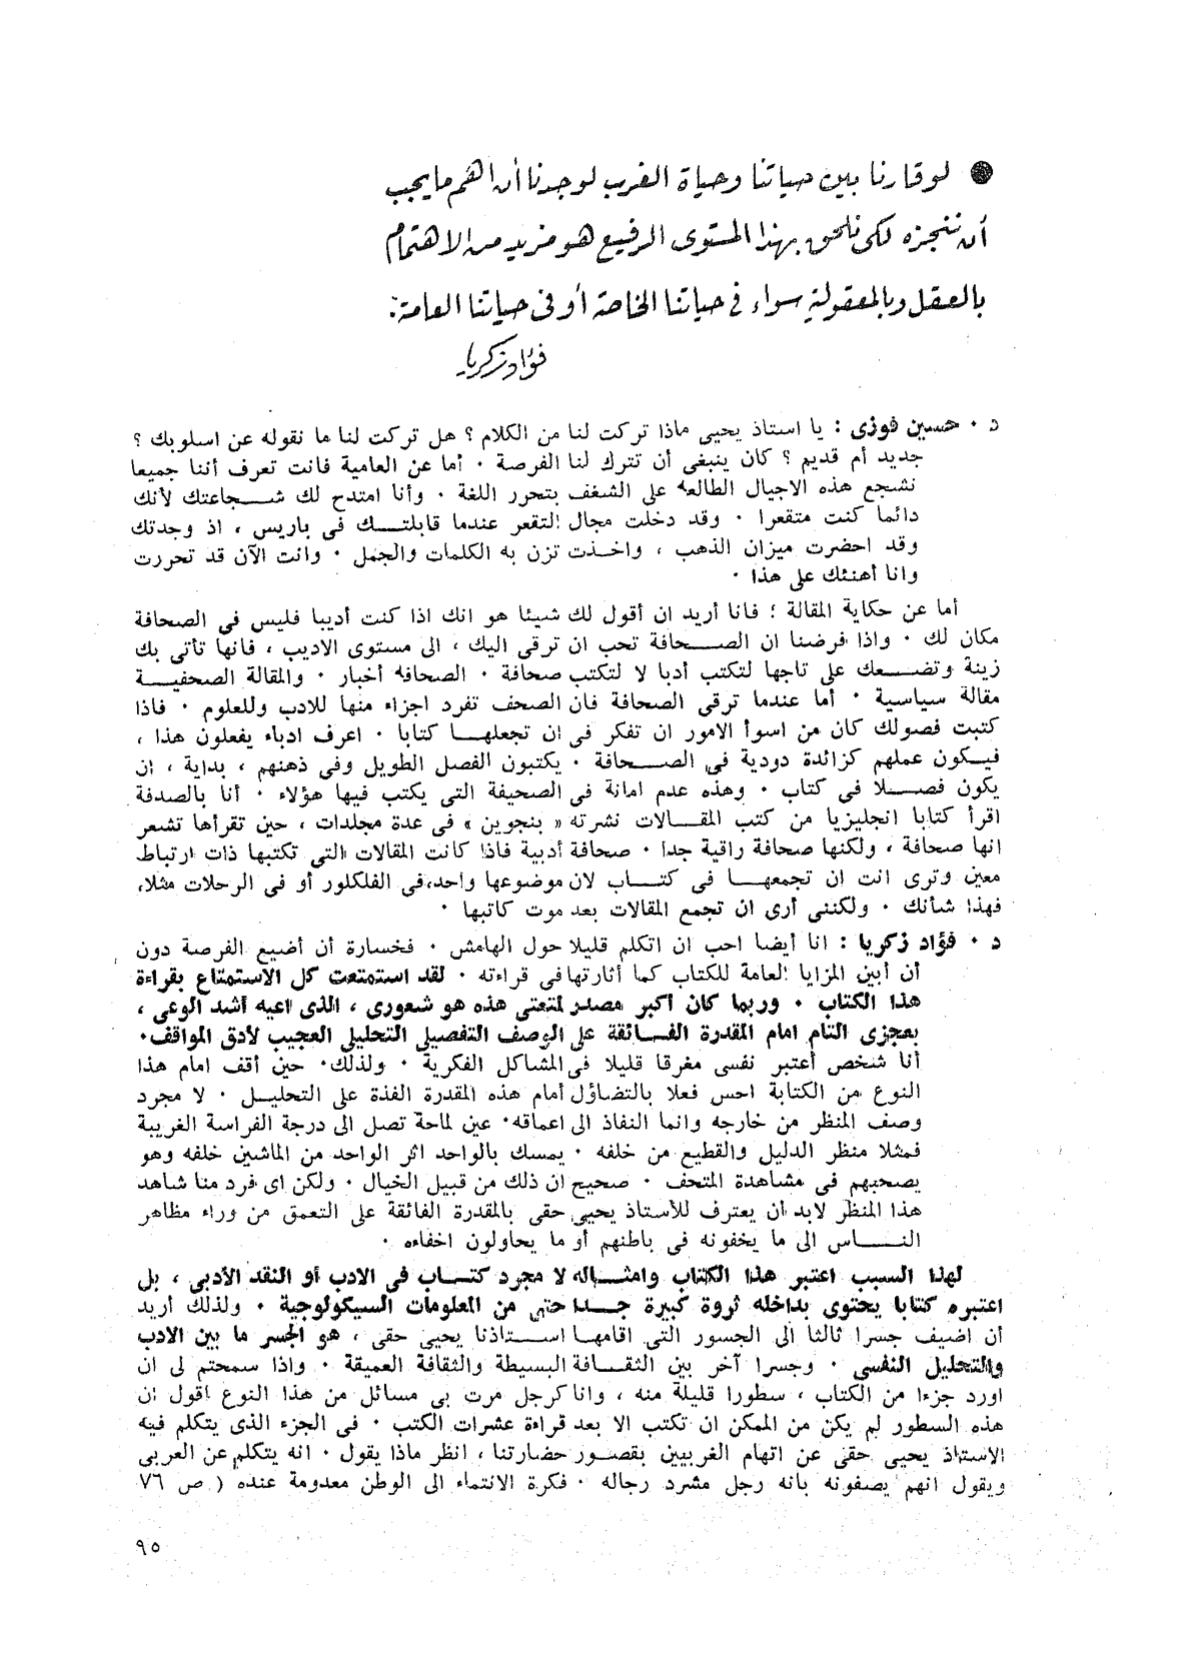 ● لو قارنا بين حياتنا وحياة الغرب لوجدنا أن أهم ما يجب
أن ننجزه لكى نلحق بهذا المستوى الرفيع هو مزيد من الاهتمام
بالعقل وبالمعقولية سواء فى حياتنا الخاصة أو فى حياتنا العامة:
فؤاد زكريا
د ٠ حسين فوزى : يا استاذ يحيى ماذا تركت لنا من الكلام ؟ هل تركت لنا ما نقوله عن اسلوبك ؟
جديد أم قديم ؟ كان ينبغى أن تترك لنا الفرصة ٠ أما عن العامية فانت تعرف أننا جميعا
نشجع هذه الاجيال الطالعه على الشغف بتحرر اللغة ٠ وأنا امتدح لك شـــجاعتك لأنك
دائما كنت متقعرا ٠ وقد دخلت مجال التقعر عندما قابلتـــك فى باريس ، اذ وجدتك
وقد احضرت ميزان الذهب ، واخـذت تزن به الكلمات والجمل ٠ وانت الآن قد تحررت
وانا أهنئك على هذا ٠
أما عن حكاية المقالة ؛ فانا أريد ان أقول لك شيئا هو انك اذا كنت أديبا فليس فى الصحافة
مكان لك ٠ واذا فرضنا ان الصـــحافة تحب ان ترقى اليك ، الى مستوى الاديب ، فانها تأتى بك
زينة وتضـــعك على تاجها لتكتب أدبا لا لتكتب صحافة ٠ الصحافه أخبار ٠ والمقالة الصحفيـــة
مقالة سياسية ٠ أما عندما ترقى الصحافة فان الصحف تفرد اجزاء منها للادب وللعلوم ٠ فاذا
كتبت فصولك كان من اسوأ الامور ان تفكر فى ان تجعلهـــا كتابا ٠ اعرف ادباء يفعلون هذا ،
فيـكون عملهم كزائدة دودية فى الصـــحافة ٠ يكتبون الفصل الطويل وفى ذهنهم ، بداية ، ان
يكون فصـــلا فى كتاب ٠ وهذه عدم امانة فى الصحيفة التى يكتب فيها هؤلاء ٠ أنا بالصدفة
اقرأ كتابا انجليزيا من كتب المقـــالات نشرته « بنجوين » فى عدة مجلدات ، حين تقرأها تشعر
انها صحافة ، ولكنها صحافة راقية جدا ٠ صحافة أدبية فاذا كانت المقالات التى تكتبها ذات ارتباط
معين وترى انت ان تجمعهـــا فى كتـــاب لان موضوعها واحد، فى الفلكلور أو فى الرحلات مثلا،
فهذا شأنك ٠ ولكننى أرى ان تجمع المقالات بعد موت كاتبها ٠
د ٠ فؤاد زكريا : انا أيضا احب ان اتكلم قليلا حول الهامش ٠ فخسارة أن أضيع الفرصة دون
أن أبين المزايا العامة للكتاب كما أثارتها فى قراءته ٠ لقد استمتعت كل الاستمتاع بقراءة
هذا الكتاب ٠ وربما كان أكبر مصدر لمتعتى هذه هو شعورى ، الذى اعيه أشد الوعى ،
بعجزى التام امام المقدرة الفـــائقة على الوصف التفصيلى التحليلى العجيب لأدق المواقف٠
أنا شخص أعتبر نفسى مغرقا قليلا فى المشاكل الفكرية ٠ ولذلك٠ حين أقف امام هذا
النوع من الكتابة احس فعلا بالتضاؤل أمام هذه المقدرة الفذة على التحليـــل ٠ لا مجرد
وصف المنظر من خارجه وانما النفاذ الى اعماقه٠ عين لماحة تصل الى درجة الفراسة الغريبة
فمثلا منظر الدليل والقطيع من خلفه ٠ يمسك بالواحد اثر الواحد من الماشين خلفه وهو
يصحبهم فى مشاهدة المتحف ٠ صحيح ان ذلك من قبيل الخيال ٠ ولكن اى فرد منا شاهد
هذا المنظر لابد أن يعترف للأستاذ يحيى حقى بالمقدرة الفائقة على التعمق من وراء مظاهر
النـــاس الى ما يخفونه فى باطنهم أو ما يحاولون اخفاءه ٠
لهذا السبب اعتبر هذا الكتاب وامثـــاله لا مجرد كتـــاب فى الادب أو النقد الأدبى ، بل
اعتبره كتابا يحتوى بداخله ثروة كبيرة جـــدا حتى من المعلومات السيكولوجية ٠ ولذلك أريد
أن اضيف جسرا ثالثا الى الجسور التى اقامهـا اســـتاذنا يحيى حقى ، هو الجسر ما بين الادب
والتحليل النفسى ٠ وجسرا آخر بين الثقـــافة البسيطة والثقافة العميقة ٠ واذا سمحتم لى ان
اورد جزءا من الكتاب ، سطورا قليلة منه ، وانا كرجل مرت بى مسائل من هذا النوع أقول ان
هذه السطور لم يكن من الممكن ان تكتب الا بعد قراءة عشرات الكتب ٠ فى الجزء الذى يتكلم فيه
الاستاذ يحيى حقى عن اتهام الغربيين بقصـور حضارتنا ، انظر ماذا يقول ٠ انه يتكلم عن العربى
ويقول انهم يصفونه بانه رجل مشرد رجاله ٠ فكرة الانتماء الى الوطن معدومة عنده ( ص ٧٦
٩٥